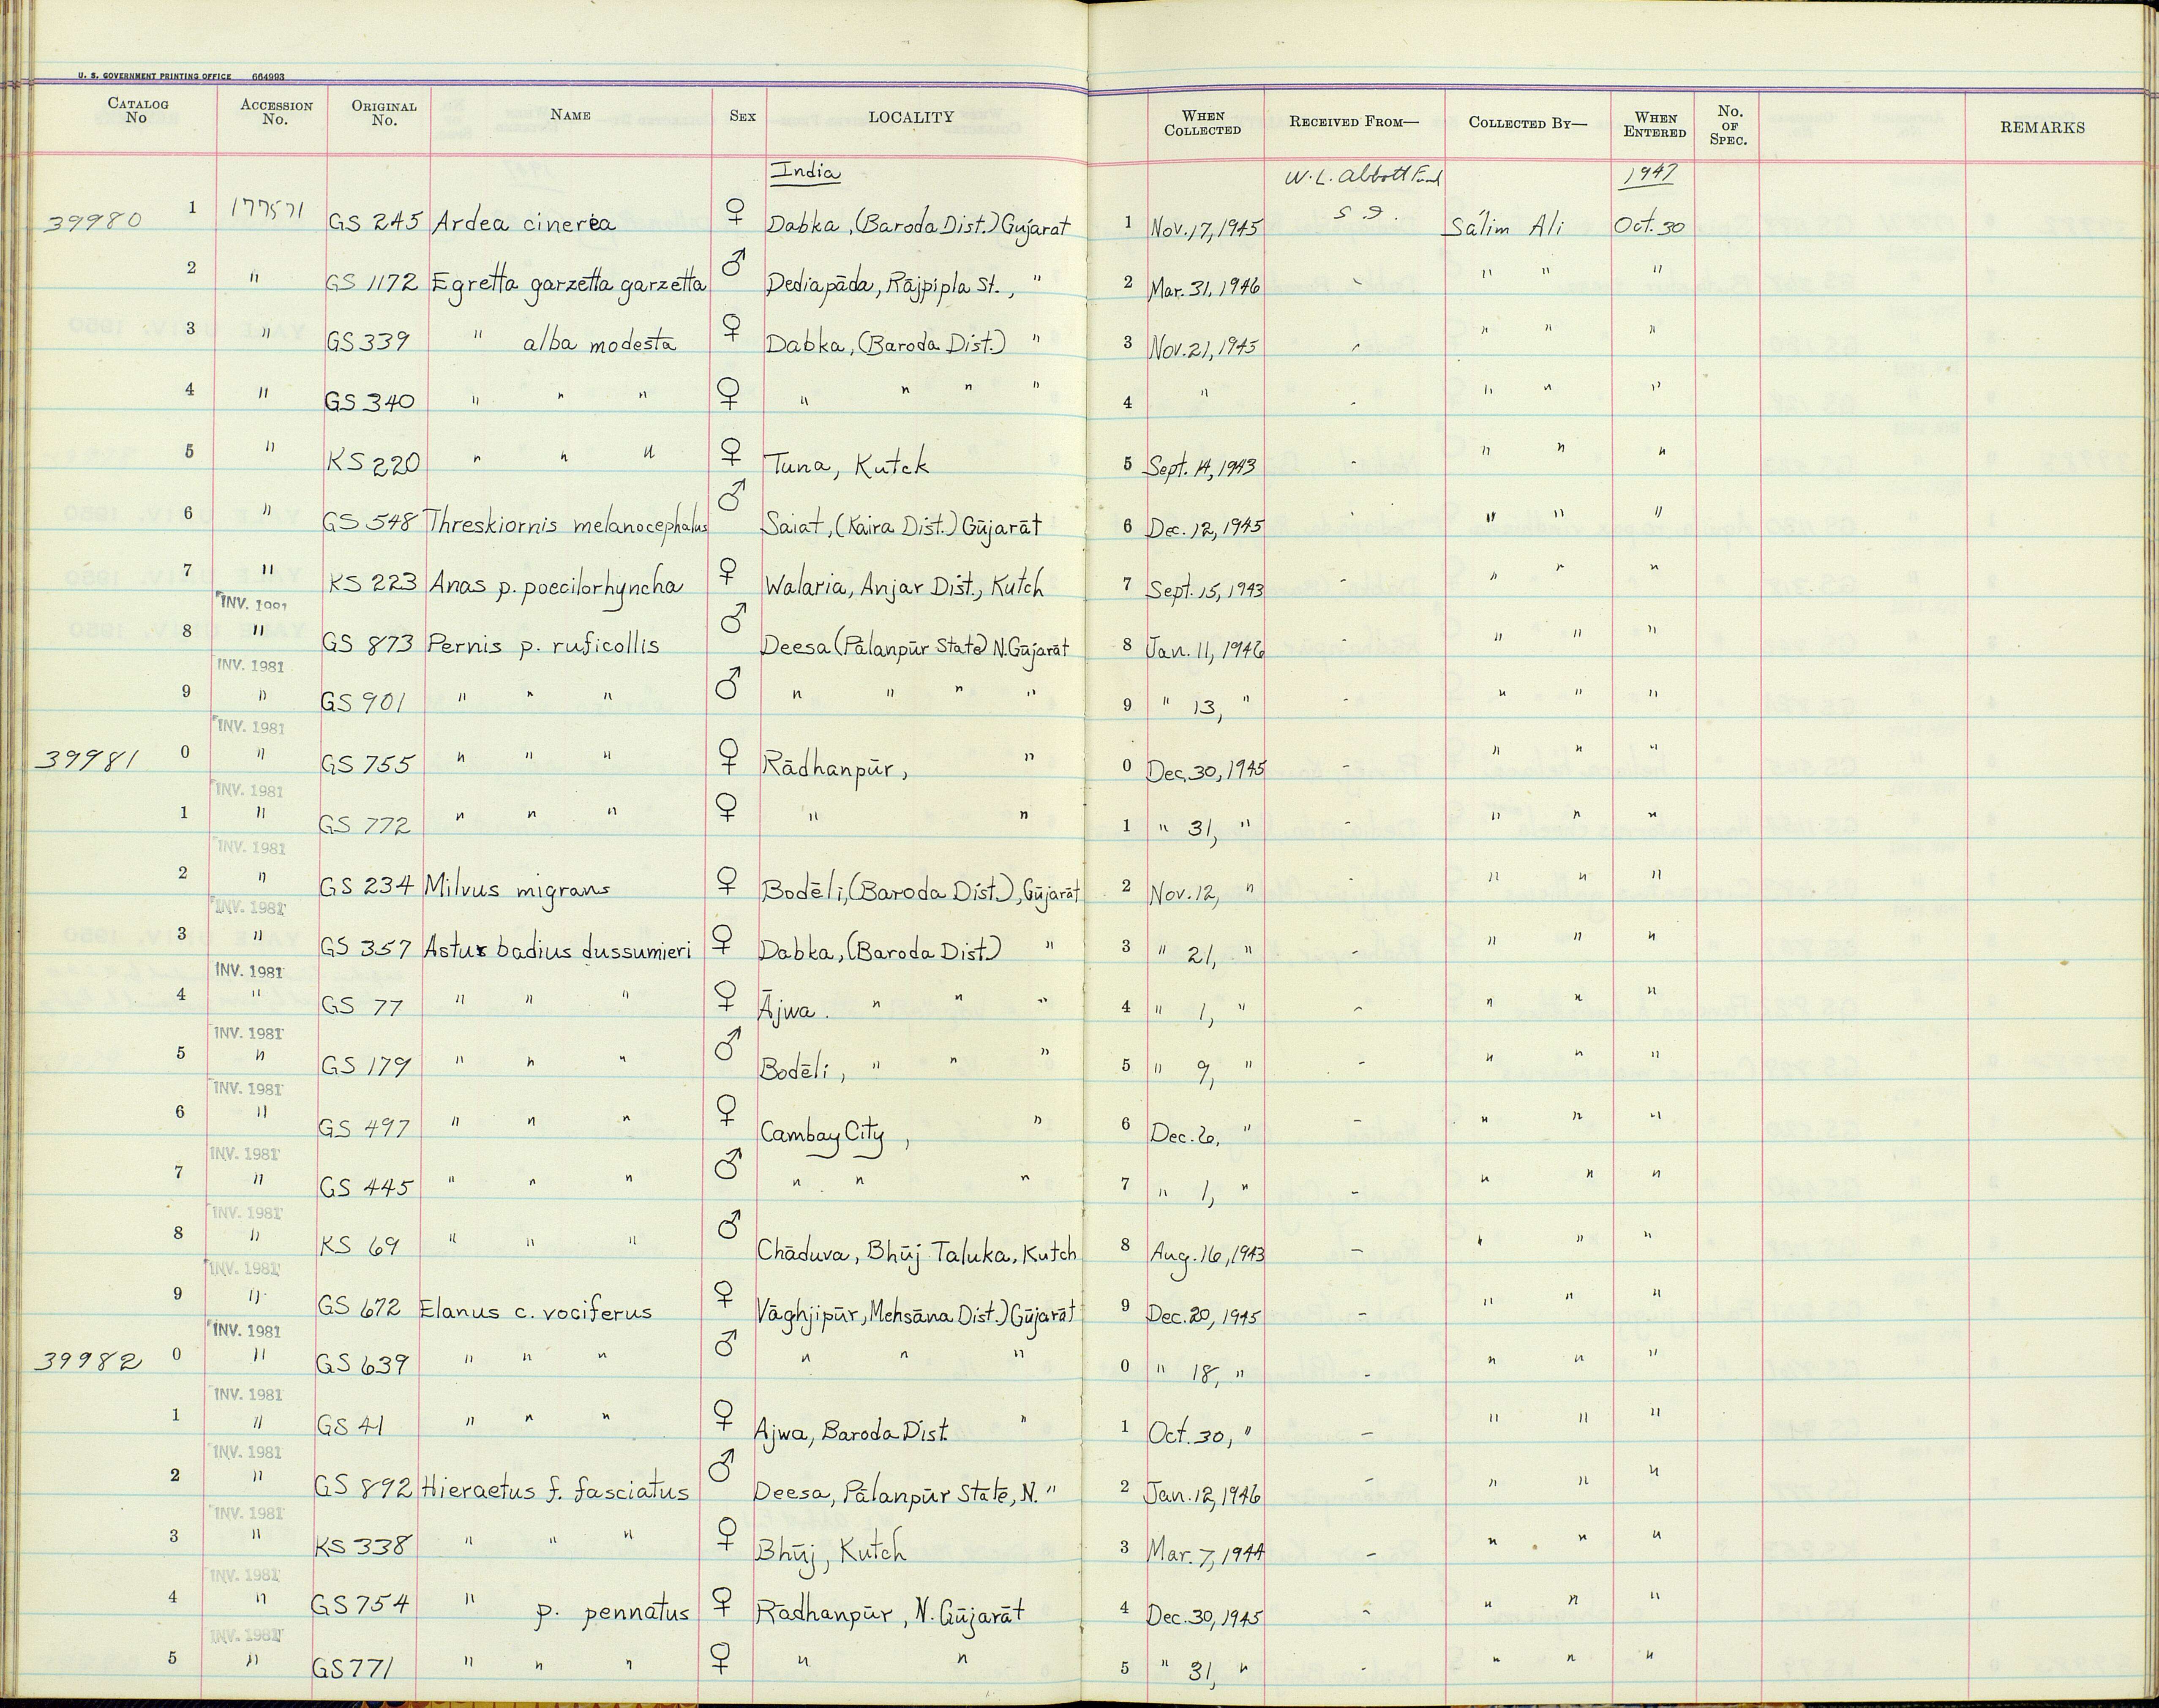 U. S. GOVERNMENT PRINTING OFFICE 664993
CATALOG No ACCESSION No. ORIGINAL No. NAME SEX LOCALITY WHEN COLLECTED RECEIVED FROM— COLLECTED BY— WHEN ENTERED No. OF SPEC. REMARKS
India W. L. Abbott Fund 1947
39980 1 177571 GS 245 Ardea cinerea ♀ Dabka, (Baroda Dist.) Gujarat 1 Nov. 17, 1945 S. I. Sálim Ali Oct. 30
2 " GS 1172 Egretta garzetta garzetta ♂ Dediapāda, Rājpipla St., " 2 Mar. 31, 1946 - " " "
3 " GS 339 " alba modesta ♀ Dabka, (Baroda Dist.) " 3 Nov. 21, 1945 - " " "
4 " GS 340 " " " ♀ " " " " 4 " - " " "
5 " KS 220 " " " ♀ Tuna, Kutck 5 Sept. 14, 1943 - " " "
6 " GS 548 Threskiornis melanocephalus ♂ Saiat, (Kaira Dist.) Gūjarāt 6 Dec. 12, 1945 - " " "
7 " KS 223 Anas p. poecilorhyncha ♀ Walaria, Anjar Dist., Kutch 7 Sept. 15, 1943 - " " "
INV. 1981
8 " GS 873 Pernis p. ruficollis ♂ Deesa (Pālanpūr State) N. Gūjarāt 8 Jan. 11, 1946 - " " "
INV. 1981
9 " GS 901 " " " ♂ " " " " 9 " 13, " - " " "
INV. 1981
39981 0 " GS 755 " " " ♀ Rādhanpūr, " 0 Dec. 30, 1945 - " " "
INV. 1981
1 " GS 772 " " " ♀ " " 1 " 31, " - " " "
INV. 1981
2 " GS 234 Milvus migrans ♀ Bodēli, (Baroda Dist.), Gūjarāt 2 Nov. 12, " - " " "
INV. 1981
3 " GS 357 Astur badius dussumieri ♀ Dabka, (Baroda Dist.) " 3 " 21, " - " " "
INV. 1981
4 " GS 77 " " " ♀ Ājwa. " " " 4 " 1, " - " " "
INV. 1981
5 " GS 179 " " " ♂ Bodēli, " " " 5 " 9, " - " " "
INV. 1981
6 " GS 497 " " " ♀ Cambay City, " 6 Dec. 6, " - " " "
INV. 1981
7 " GS 445 " " " ♂ " " " 7 " 1, " - " " "
INV. 1981
8 " KS 69 " " " ♂ Chāduva, Bhūj Taluka, Kutch 8 Aug. 16, 1943 - " " "
INV. 1981
9 " GS 672 Elanus c. vociferus ♀ Vāghjipūr, Mehsāna Dist.) Gūjarāt 9 Dec. 20, 1945 - " " "
INV. 1981
39982 0 " GS 639 " " " ♂ " " " 0 " 18, " - " " "
INV. 1981
1 " GS 41 " " " ♀ Ajwa, Baroda Dist. " 1 Oct. 30, " - " " "
INV. 1981
2 " GS 892 Hieraetus f. fasciatus ♂ Deesa, Pālanpūr State, N. " 2 Jan. 12, 1946 - " " "
INV. 1981
3 " KS 338 " " " ♀ Bhūj, Kutch 3 Mar. 7, 1944 - " " "
INV. 1981
4 " GS 754 " p. pennatus ♀ Rādhanpūr, N. Gūjarāt 4 Dec. 30, 1945 - " " "
INV. 1981
5 " GS 771 " " " ♀ " " 5 " 31, " - " " "